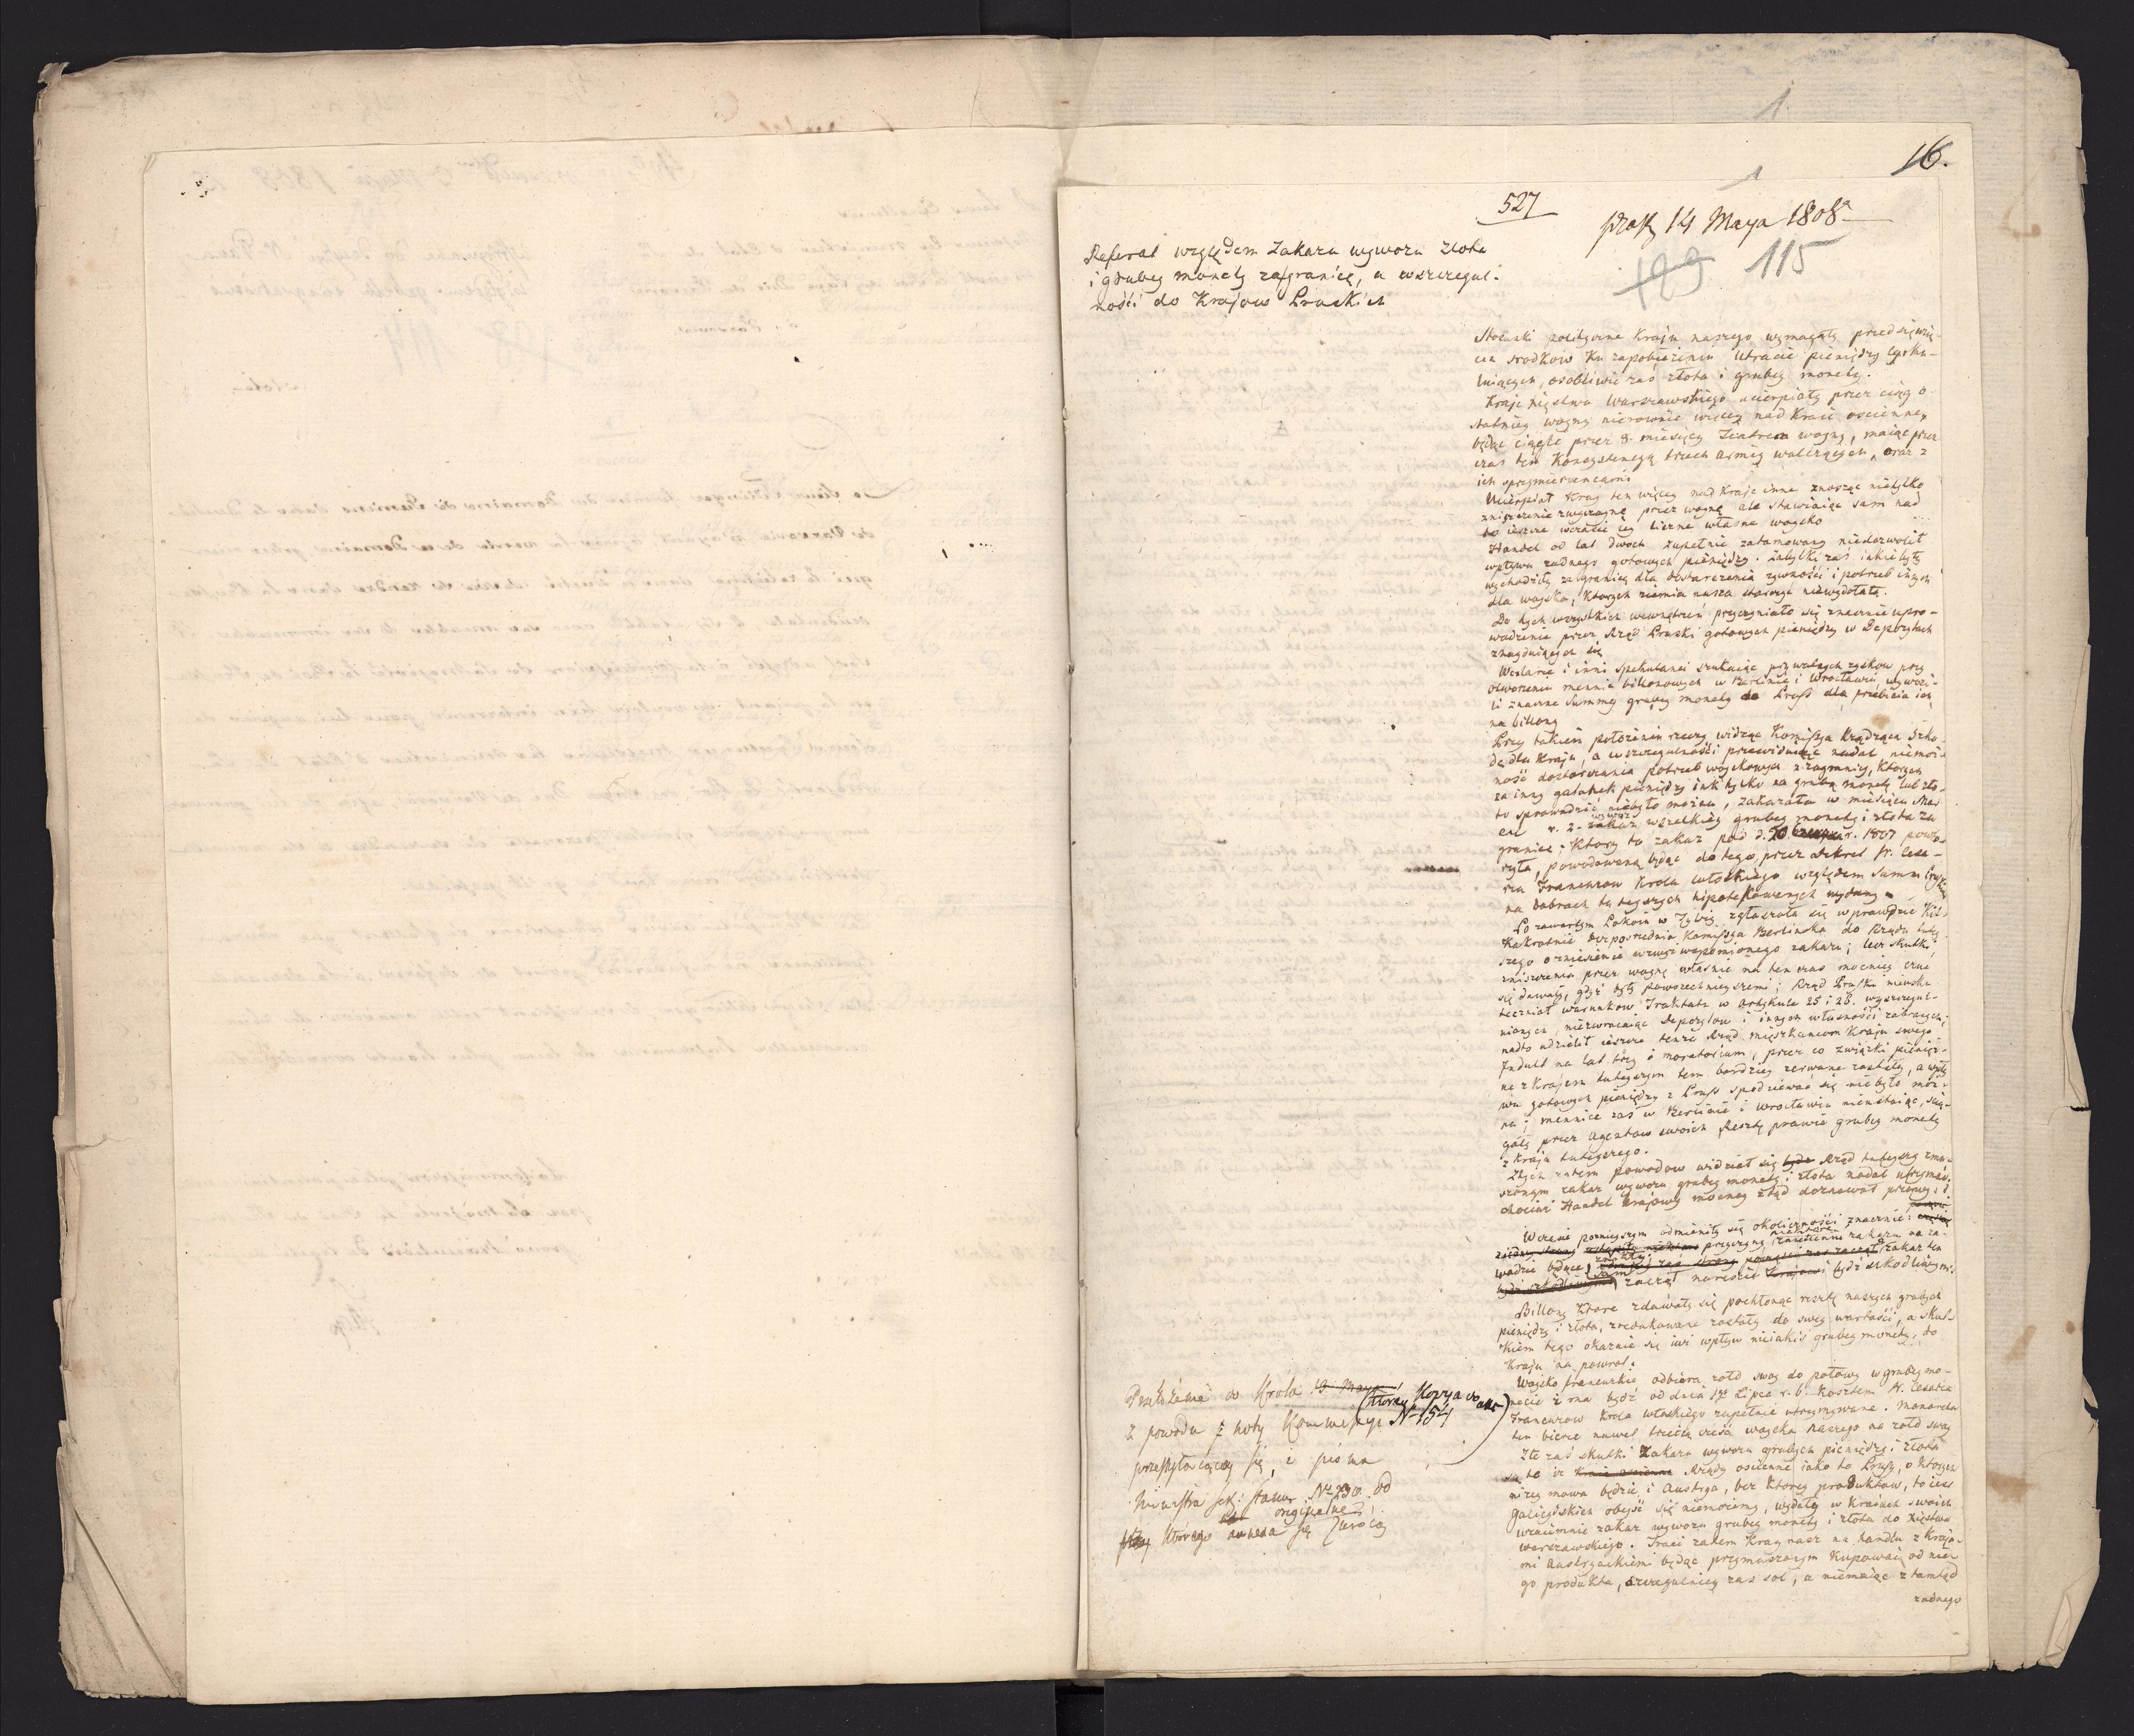 1
16.
1
527
14 Maya 1808
129 115
Referat względem Zakazu wywozu złota
i grubey monety zagranicę, a wszczegul-
ności do Krajow Pruskich
Stosunki polityczne Kraju naszego wymagały przedsięwzię-
cia srodkow Ku zapobieżeniu Utracie pieniędzy cyrku-
luiących, osobliwie zaś złota i grubey monety.
Kraje Xięstwa Warszawskiego ucierpiały przez ciąg o-
statniey woyny nierownie więcey nad Kraie oscienne,
będąc ciągle przez 8. miesięcy Teatrem woyny, maiąc przez
czas ten Konsystencyą trzech armiy walczących, oraz z
ich sprzymierzencami
Ucierpiał Kray ten więcey nad Kraje inne znosząc nietylko
zniszczenie zwyczayne przez woynę ale stawiaiąc sam nad
to ieszcze wcale iey liczne własne woysko
Handel od lat dwoch zupełnie zatamowany niedozwolił
wpływu żadnego gotowych pieniędzy. zabytki zaś iakie były
wychodziły zagranicę dla dostarczenia żywności i potrzeb innych
dla woyska, Ktorych ziemia nasza starczyć niewydołała.
Do tych wszystkich wewnętrzn przyczyniało się znacznie upro-
wadzenie przez Rząd Pruski gotowych pieniędzy w Depozytach
znayduiących się
Wexlarze i inni spekulanci szukaiąc prywatnych zyskow przy
otworzeniu mennic billonowych w Berlinie i Wrocławiu, wywozi-
li znaczne Summy grubey monety do Pruss dla przebicia ich
na billony
Przy takiem położeniu rzeczy widząc Kommissya Rządząca szko-
dę dla Kraju, a wszczegulności przewiduiąc nadal niemoż-
ność dostarczania potrzeb woyskowych z zagranicy, Ktorych
za inny gatunek pieniędzy iak tylko za grubą monetę lub zło-
to sprowadzić niebyło można, zakazała w miesiącu Mar-
cu r. z. wywoz wszelkiey grubey monety i złota za
granicę; Ktory to zakaz pod d. 20 Czerwca r. 1807 powto-
rzyła, powodowaną będąc do tego przez dekret N. Cesa-
rza Francuzow Krola włoskiego względem Summ Pruskich
na Dobrach tuteyszych hipotekowanych wydany
Po zawartym Pokoiu w Tylży zgłaszała się wprawdzie Kil-
kakrotnie bezpośrednia Kommissya Berlinska do Rządu tutey-
szego o zniesienie wzwyż wspomnionego zakazu; lecz skutki
zniszczenia przez woynę własnie na ten czas mocniey czuć
się dawały, gdyż były powszechnieyszemi; Rząd Pruski nieusku-
teczniał warunkow Traktatu w Artykule 25 i 26. wyszczegul-
nionych, niezwracaiąc Depozytow i innych własności zabranych;
nadto udzielił ieszcze tenże Rząd mieszkancom Kraju swego
Indult na lat trzy i moratorium, przez co związki pienięż-
ne z Krajem tuteyszym tem bardziey zerwane zostały, a wpły-
wu gotowych pieniędzy z Pruss spodziewać się niebyło moż-
na; mennice zaś w Berlinie i Wrocławiu nieustaiąc, ścią-
gały przez Agentow swoich Resztę prawie grubey monety
z Kraju tuteyszego.
Z tych zatem powodow widział się Rząd tuteyszy zmu-
szonym zakaz wywozu grubey monety i złota nadal utrzymać,
chociaż Handel Krajowy mocney ztąd doznawał przerwy.
W czasie poznieyszym odmieniły się okoliczności znacznie:
przyczyny zniesieniu zakazu na za-
wadzie będące, zakaz ten
zaczął nareszcie bydź szkodliwym.
Billony Ktore zdawały się pochłonąć resztę naszych grubych
pieniędzy i złota, zredukowane zostały do swey wartości, a skut-
kiem tego okazuie się iuż wpływ nieiakiś grubey monety, do
Kraju na powrot.
Woysko francuzkie odbiera żołd swoy do połowy w grubey mo-
necie i ma bydź od dnia 1go Lipca r. b. Kosztem N. Cesarza
Francuzow Krola włoskiego zupełnie utrzymywane. Monarcha
ten bierze nawet trzecią część woyska naszego na żołd swoy
Złe zaś skutki Zakazu wywozu grubych pieniędzy i złota
są te iż Rządy oscienne iako to Prussy, o Ktorych
niżey mowa będzie i Austrya, bez Ktorey produktow, to iest
galicyiskich obeyść się niemożemy, wydały w Kraiach swoich
wzaiemnie zakaz wywozu grubey monety i złota do Xięstwa
warszawskiego. Traci zatem Kray nasz na handlu z Kraja-
mi Austryackiemi będąc przymuszonym Kupować od nie-
go produkta, szczegulniey zaś sol, a niemaiąc ztamtąd
żadnego
Przełożenie do Krola 19. Maya
(Ktorey Kopya do akt)
z powodu z noty Kommissyi No 154
przesyłaiącey się, i pisma
Ministra Sek: Stanu No 230. od
originalne
Ktorego zwraca się